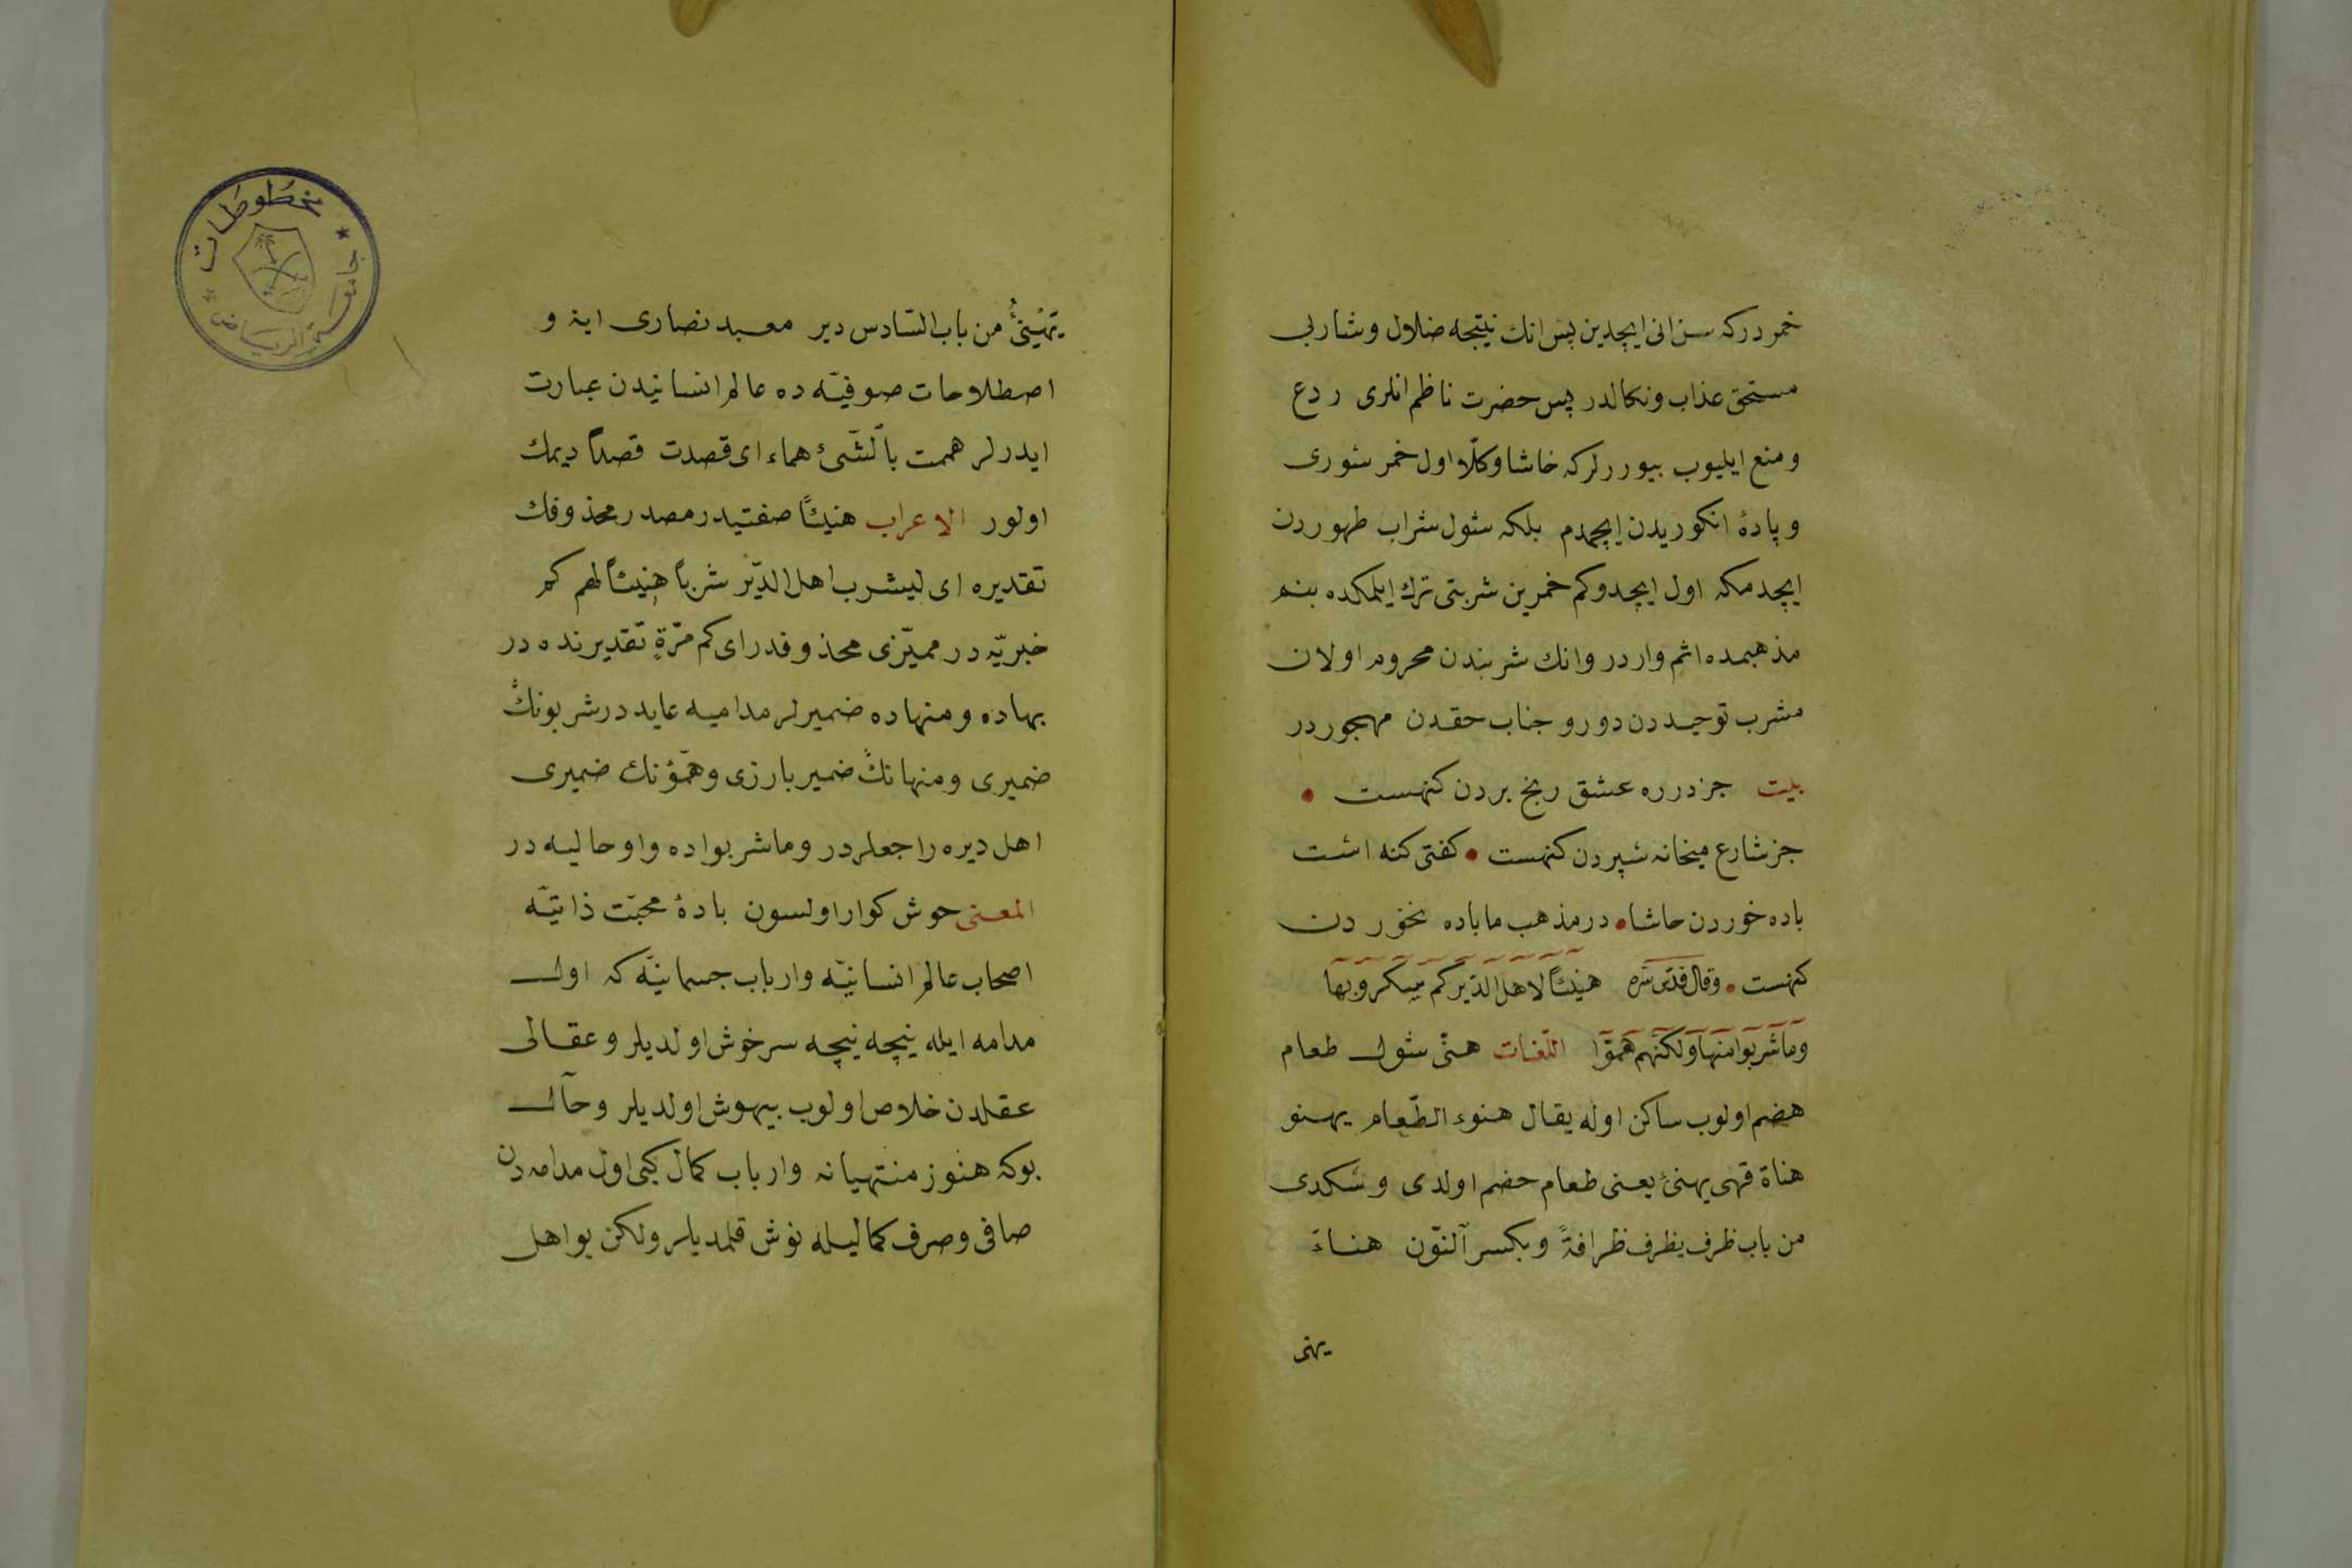 خمر در که سز انی ایچدین پس انك نتیجه ضلال و شاربی
مستحق عذاب و نکالدر پس حضرت ناظم انلری ردع
و منع ایلیوب بیوررلر که خاشا و کلّا اول خمر شوری
و بادۀ انکوریدن ایچمدم بلکه شول شراب طهوردن
ایچدمکه اول ایچدوکم خمرین شربتی ترك ایلمکده بنم
مذهبمده اثم واردر وانك شربندن محروم اولان
مشرب توحیددن دور و جناب حقدن مهجوردر
بیت جز در ره عشق رنج بردن کنهست •
جز شارع میخانه سپردن کنهست • کفتی کنه است
باده خوردن حاشا • در مذهب ما باده نخوردن
کنهست • وقال قدّس سرّه هنیئاً لاهل الدّیر کم سکروا بها
وما شربوا منها ولکنّهم همّوا اللّغات هنئ شول طعام
هضم اولوب ساکن اوله یقال هنوء الطّعام یهنو
هناة فهی یهنئ یعنی طعام حضم اولدی و سکدی
من باب ظرف یظرف ظرافةً و بکسر آلنّون هناءَ
یهنی
یَهْنِئُ من باب السّادس دیر معبد نصاری اینه و
اصطلاحات صوفیّه ده عالم انسانیدن عبارت
ایدرلر هممت بالشّئ هماء ای قصدت قصداً دیمك
اولور الاعراب هنیئاً صفتیدر مصدر محذوفك
تقدیره ای لیشرب اهل الدّیر شرباً هنیئاً لهم کم
خبریّه در ممیّزی محذوفدر ای کم مرّةٍ تقدیرنده در
بهاده و منهاده ضمیرلر مدامیه عاید در شربونك
ضمیری و منهانك ضمیر بارزی و همّوٴنك ضمیری
اهل دیره راجعلردر و ما شربواده واو حالیه در
المعنی خوش کوار اولسون بادۀ محبّت ذاتیّه
اصحاب عالم انسانیّه و ارباب جسمانیّه که اول
مدامه ایله نیچه نیچه سرخوش اولدیلر و عقالی
عقلدن خلاص اولوب بیهوش اولدیلر و حآل
بوکه هنوز منتهیانه و ارباب کمال کبی اول مدامه دن
صافی و صرف کمالیله نوش قلمدیلر ولکن بو اهل
مخطوطات
جامعة الریاض